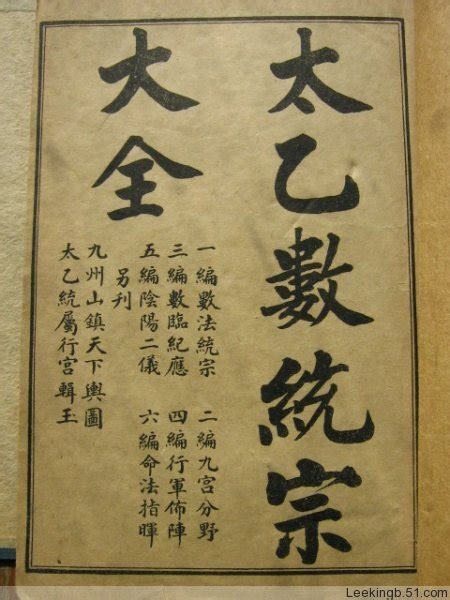 太乙數統宗
大全
一編數法統宗 二編九宮分野
三編數臨紀應 四編行軍佈陣
五編陰陽二儀 六編命法指暉
另刊
九州山鎮天下輿圖
太乙統屬行宮輯玉
Leekingb.51.com